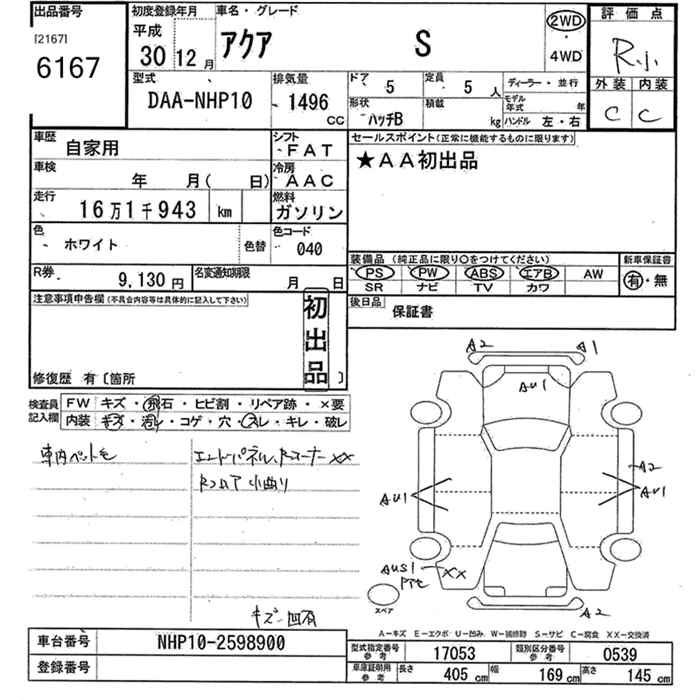 出品番号
[2167]
6167
初度登録年月
平成
30 12月
車名・グレード
アクア S
2WD
・
4WD
評価点
R小
外装 内装
C C
型式
DAA-NHP10
排気量
1496
CC
ドア 5
定員 5人
ディーラー・並行
形状 ハッチB
積載 kg
モデル年式 年
ハンドル 左・右
車歴 自家用
シフト FAT
車検 年 月( 日)
冷房 AAC
走行 16万1千943 km
燃料 ガソリン
色 ホワイト
色替
色コード 040
R券 9,130円
名変通知期限 月 日
セールスポイント(正常に機能するものに限ります)
★AA初出品
装備品(純正品に限り○をつけてください)
新車保証書
PS PW ABS エアB AW
SR ナビ TV カワ
有・無
後日品 保証書
注意事項申告欄(不具合内容等は具体的に記入して下さい)
初出品
修復歴 有〔箇所 〕
検査員記入欄
FW キズ・飛石・ヒビ割・リペア跡・×要
内装 キズ・汚レ・コゲ・穴・スレ・キレ・破レ
車内ペット毛
エンドパネル、Rコーナー XX
Rフロア 小曲り
キズ・凹有
A2
A1
AU1
A2
AU1
AU1
AUS1
XX
スペア
A2
A−キズ E−エクボ U−凹み W−補修跡 S−サビ C−腐食 XX−交換済
車台番号 NHP10-2598900
登録番号
型式指定番号 参考 17053
類別区分番号 参考 0539
車庫証明用 参考 長さ 405cm 幅 169cm 高さ 145cm